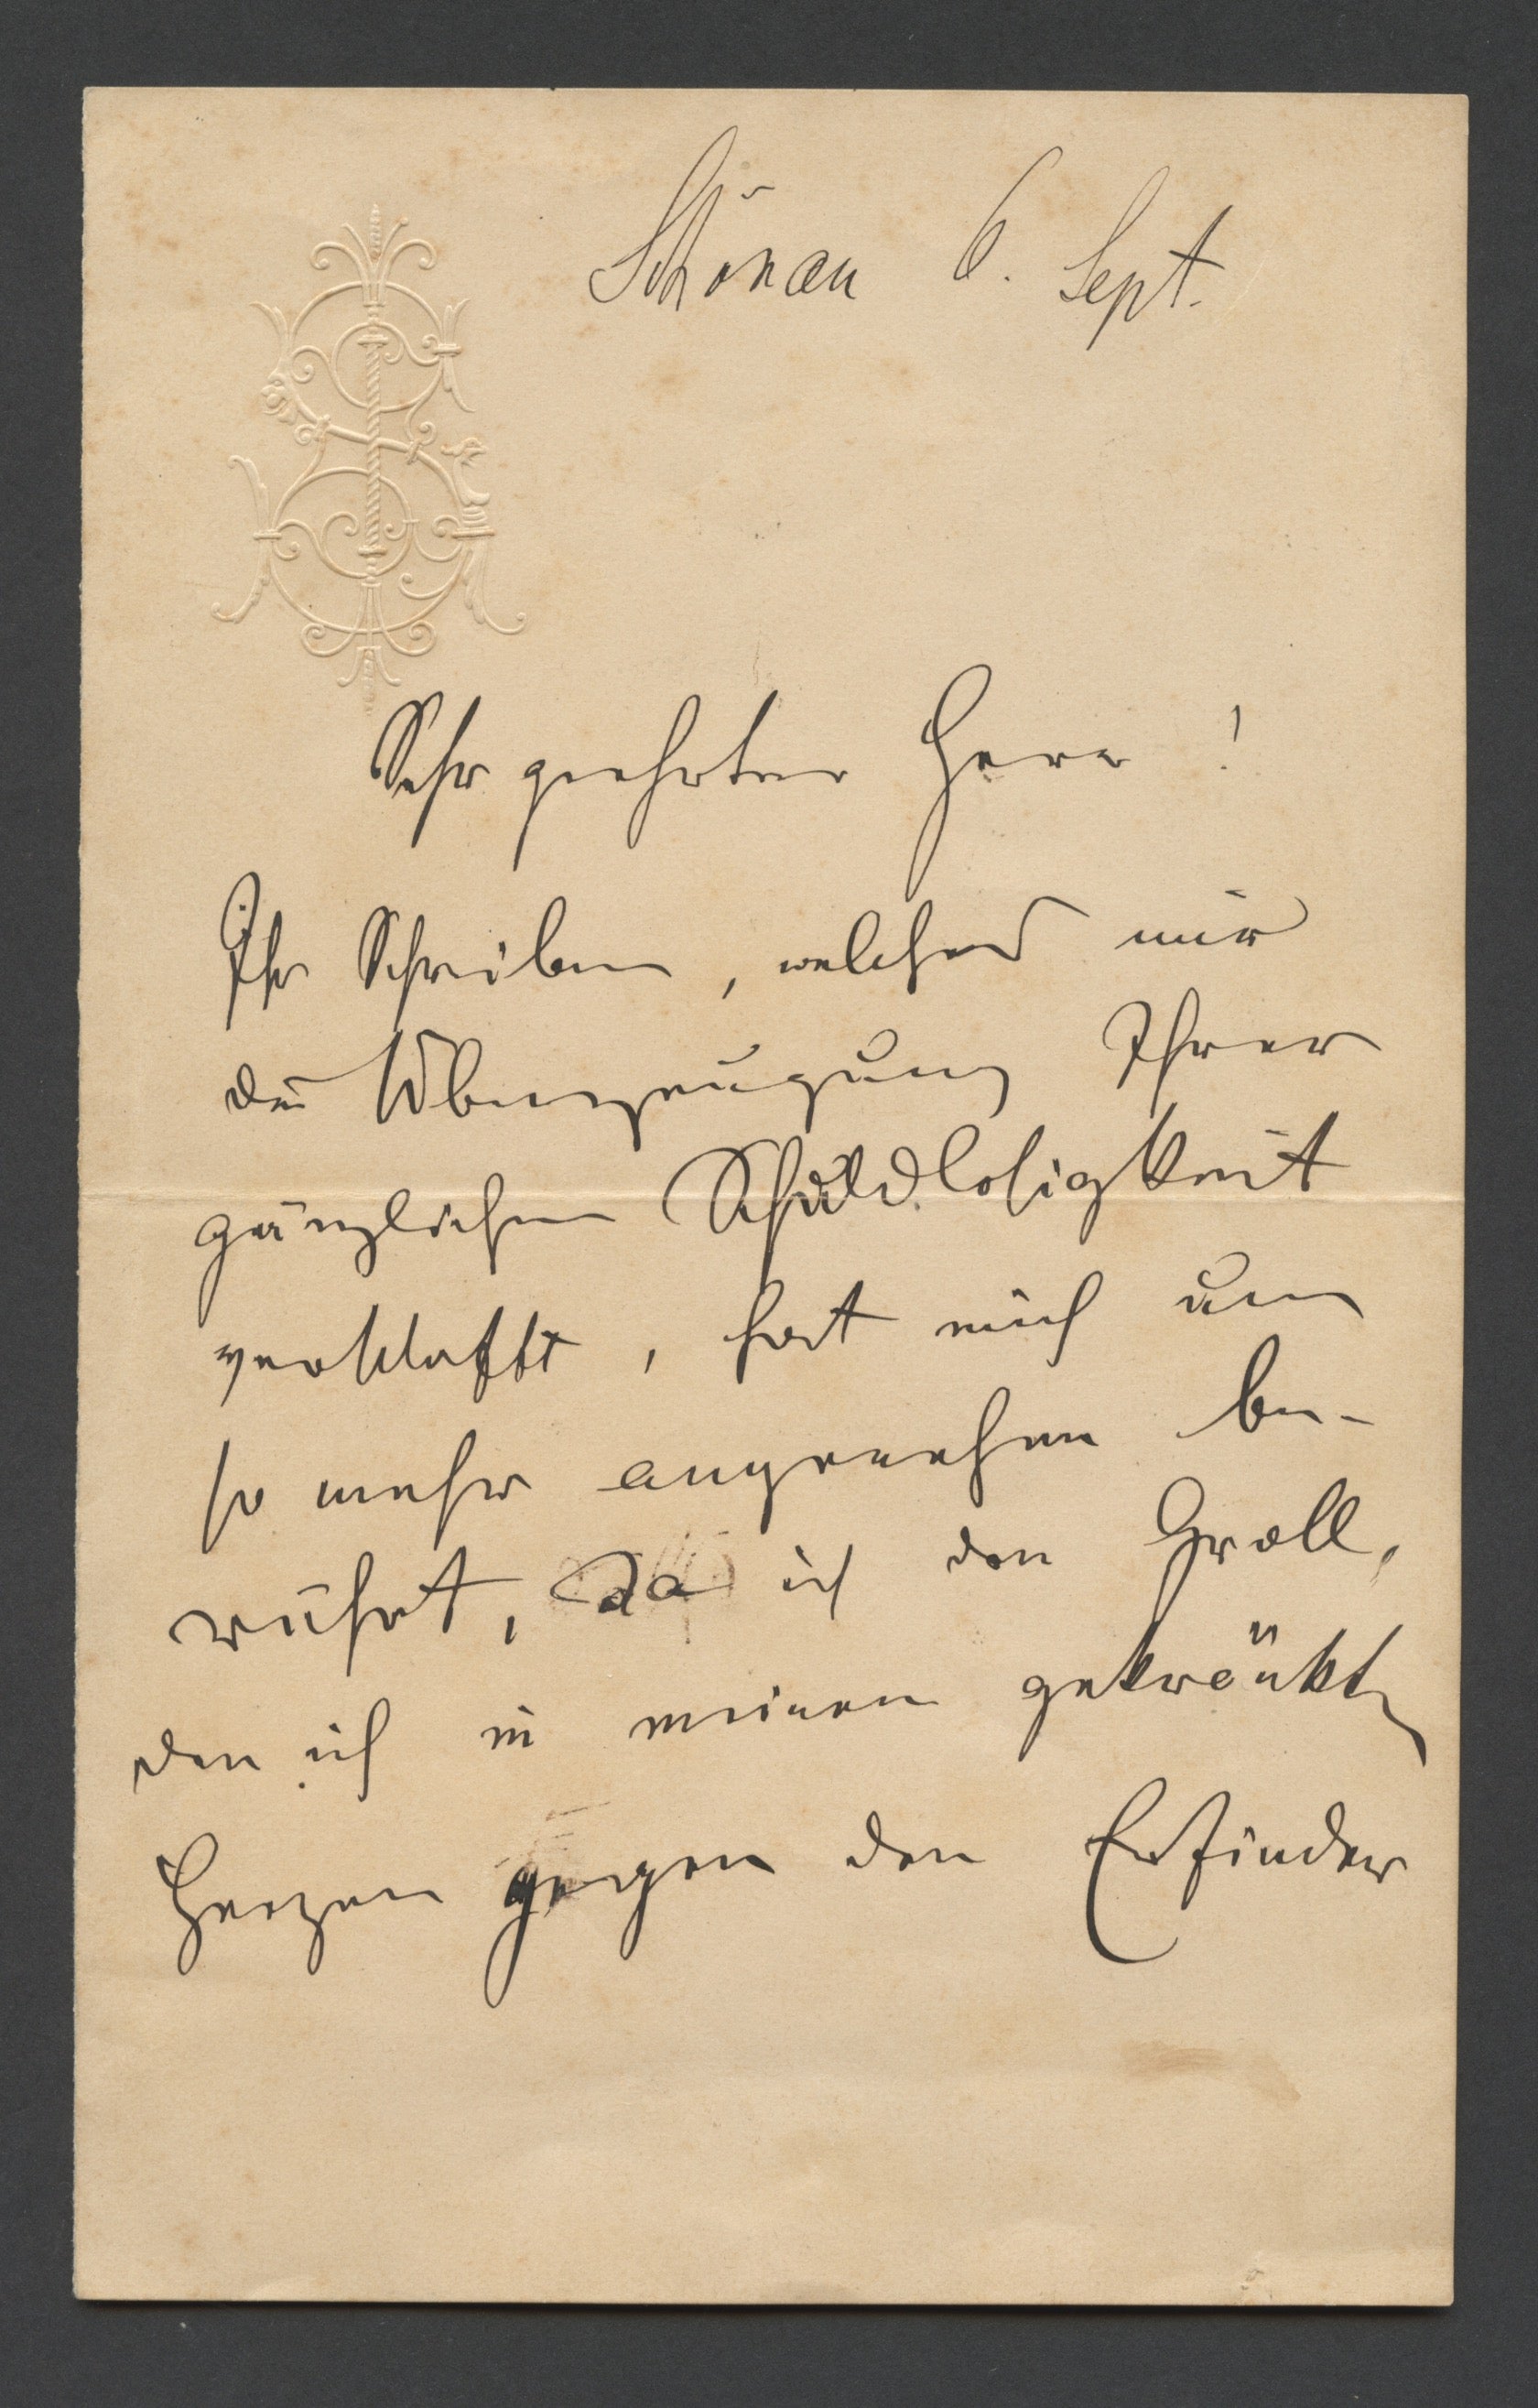 Schönau 6. Sept.
Sehr geehrter Herr !
Ihr Schreiben, welches mir
die Überzeugung Ihrer
gänzlichen Schuldlosigkeit
verschafft, hat mich um
so mehr angenehm be-
rührt, da ich den Groll,
den ich in meinem gekränkten
Herzen gegen den Erfinder